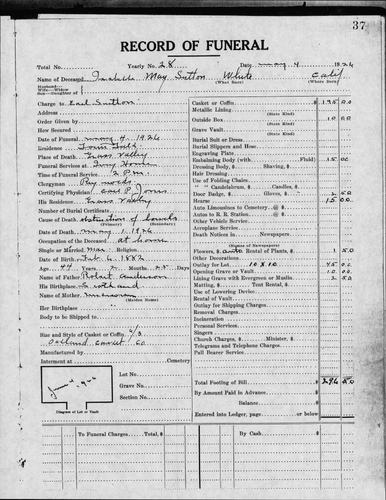 37
RECORD OF FUNERAL
Total No. Yearly No. 28 Date May 4 1926
Name of Deceased May Sutton White Calif
(What Race) (Where Born)
Husband—
Wife—Widow
Son—Daughter of
Charge to Earl Sutton
Address
Order Given by
How Secured
Date of Funeral May 4, 1926
Residence
Place of Death Grass Valley
Funeral Services at Home
Time of Funeral Service 2 P.M.
Clergyman
Certifying Physician Carl P. Jones
His Residence Grass Valley
Number of Burial Certificate
Cause of Death obstruction of bowels
(Primary) (Secondary)
Date of Death May 1, 1926
Occupation of the Deceased at home
Single or Married Mar. Religion
Date of Birth Oct. 6, 1882
Age
Name of Father Robert Anderson
His Birthplace Scotland
Name of Mother
(Maiden Name)
Her Birthplace
Body to be Shipped to
Size and Style of Casket or Coffin 6/3
Oakland Casket Co
Manufactured by
Interment at Cemetery
Lot No.
Grave No.
Section No.
Diagram of Lot or Vault
Casket or Coffin $ 195 00
Metallic Lining
(State Kind)
Outside Box
(State Kind)
Grave Vault
(State Kind)
Burial Suit or Dress
Burial Slippers and Hose
Engraving Plate
Embalming Body (with Fluid) 15 00
Dressing Body, $ Shaving, $
Hair Dressing
Use of Folding Chairs
" " Candelabrum, $ Candles, $
Door Badge, $ Gloves, $
Hearse 15 00
Auto Limousines to Cemetery @ $
Autos to R. R. Station @ $
Other Vehicle Service
Aeroplane Service
Death Notices in Newspapers
(Names of Newspapers)
Flowers, $ Rental of Plants, $ 1 50
Other Decorations
Outlay for Lot 10 x 10 45 00
Opening Grave or Vault
Lining Grave with Evergreen or Muslin
Matting, $ Tent Rental, $
Use of Lowering Device
Rental of Vault
Outlay for Shipping Charges
Removal Charges
Incineration
Personal Services
Singers
Church Charges, $ Minister, $
Telegrams and Telephone Charges
Pall Bearer Service
Total Footing of Bill $ 296 50
By Amount Paid in Advance
Balance
Entered into Ledger, page or below.
To Funeral Charges Total, $ By Cash $